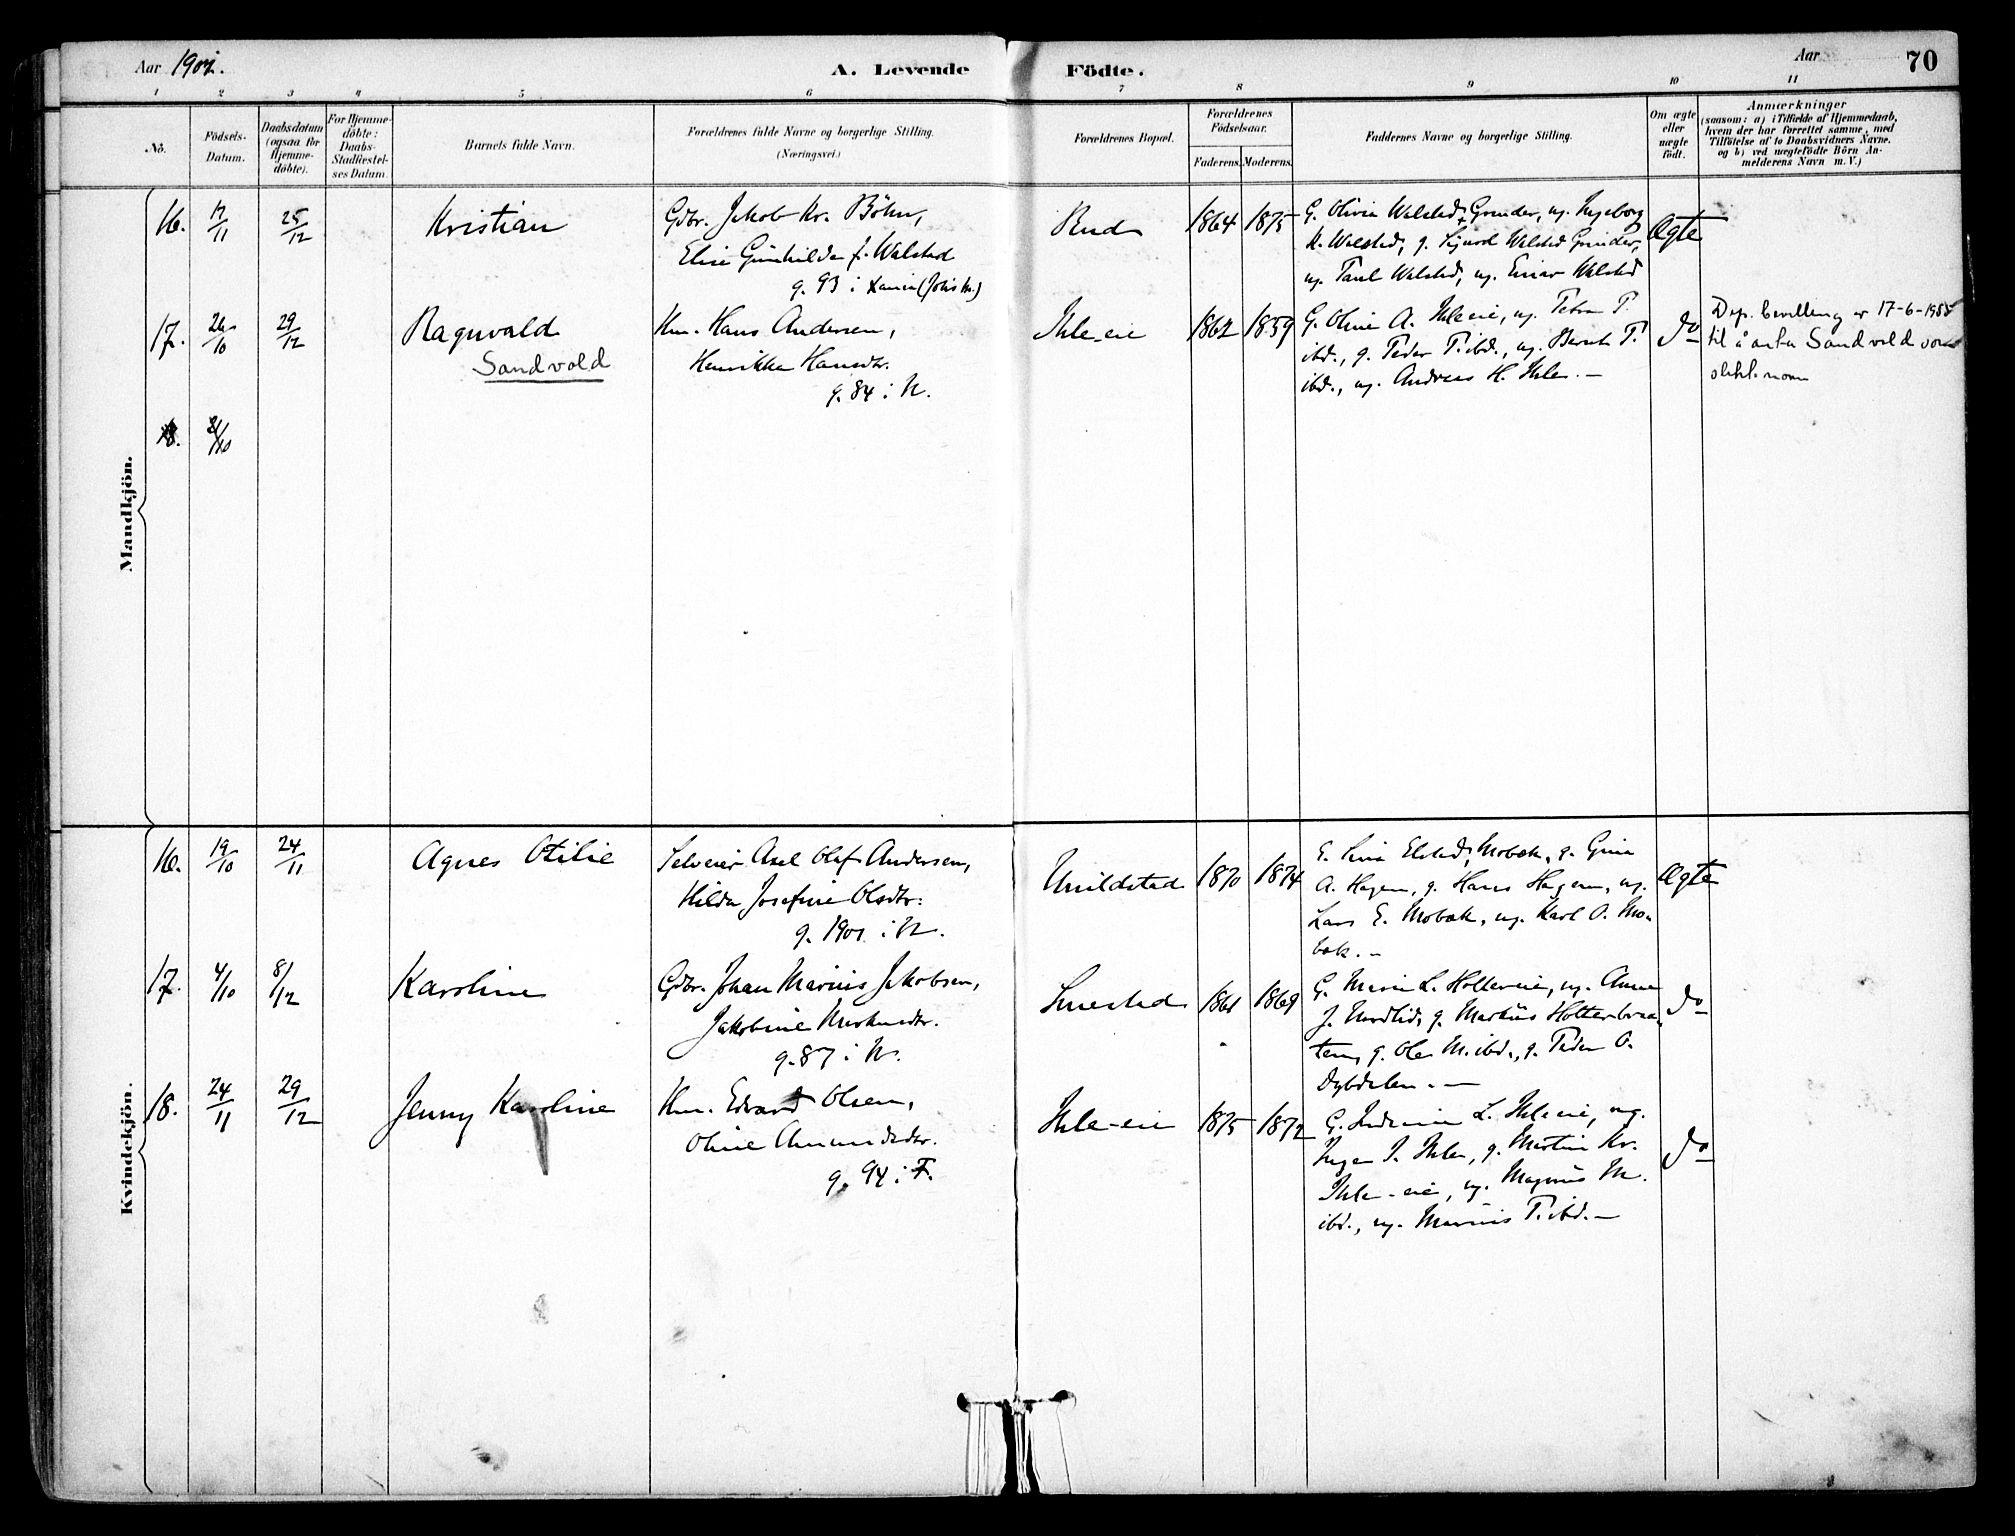 Aar 1901.
A. Levende Födte.
Aar
70
1 2 3 4 5 6 7 8 9 10 11
No.
Födsels-Datum.
Daabsdatum (ogsaa for Hjemme-döbte).
For Hjemme-döbte: Daabs-Stadfæstel-ses Datum.
Barnets fulde Navn.
Forældrenes fulde Navne og borgerlige Stilling.
(Næringsvei.)
Forældrenes Bopæl.
Forældrenes Födselsaar.
Faderens. Moderens.
Faddernes Navne og borgerlige Stilling.
Om ægte eller uægte födt.
Anmærkninger
(saasom: a) i Tilfælde af Hjemmedaab,
hvem der har forrettet samme, med
Tilföielse af to Daabsvidners Navne,
og b) ved uægtefödte Börn An-
melderens Navn m. V.)
Mandkjön.
16. 17/11 25/12 Kristian
Gbr. Jakob Kr. Böhn,
Elise Gunhilda f. Walstad
g. 93 i (Johs k.)
Rud 1864 1875
G. Olivia Walstad, Grinder, ug. Ingeborg
K. Walstad, g. Sigurd Walstad Grinder,
ug. Paul Walstad, ug. Einar Walstad
Ægte
17. 26/10 29/12 Ragnvald
Sandvold
Hm. Hans Andersen,
Henrikke Hansdtr.
g. 84 i N.
Ihle-eie 1862 1859
G. Oline A. Ihleeie, ug. Petra P.
ibd., g. Peder P. ibd., ug. Bernt P.
ibd., ug. Andreas H. Ihle. –
do
Dep. bevilling av 17-6-1955
til å anta Sandvold som
slekt.navn
18. /10
Kvindekjön.
16. 19/10 24/11 Agnes Otilie
Selveier Axel Olaf Andersen,
Hilda Josefine Olsdtr.
g. 1901 i N.
Unildstad 1870 1874
G. Lina Elstad, Mobæk, g. Gina
A. Hagen, g. Hans Hagen, ug.
Lars E. Mobæk, ug. Karl O. Mo-
bæk. –
Ægte
17. 4/10 8/12 Karoline
Gbr. Johan Marius Jakobsen,
Jakobine Markusdtr.
g. 87 i N.
Smestad 1861 1869
G. Marie L. Holtereie, ug. Anna
J. Nordlid, g. Markus Holterbraa-
ten, g. Ole M. ibd., g. Peder O.
Dybdalen. –
do
18. 24/11 29/12 Jenny Karoline
Hm. Edvard Olsen,
Oline Amundsdtr.
g. 94 i F.
Ihle-eie 1875 1872
G. L. Ihleeie, ug.
Inga J. Ihle, g. Martin Kr.
Ihle-eie, ug. Magnus M.
ibd., ug. Marius P. ibd. –
do